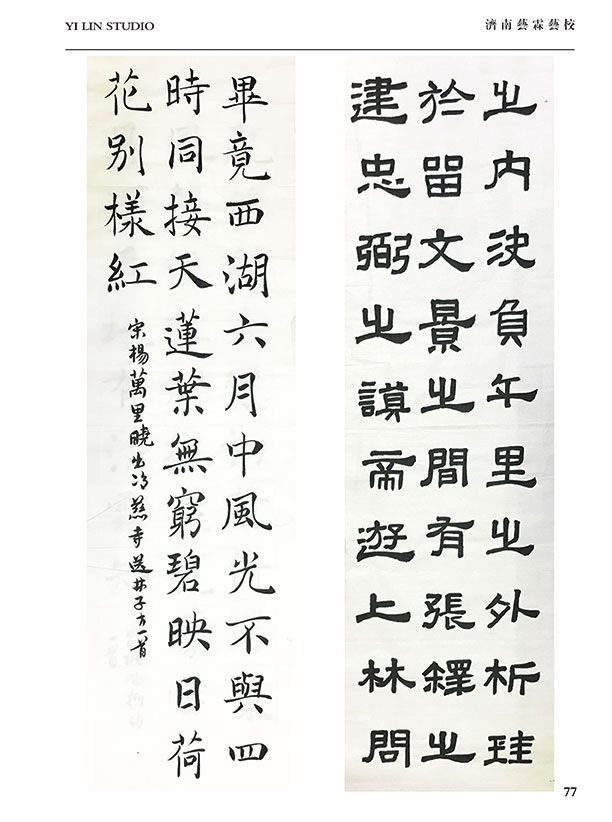 YI LIN STUDIO
濟南藝霖藝校
之内決負午里之外析珪
於留文景之間有張釋之
建忠弼之謨帝遊上林問
畢竟西湖六月中風光不與四
時同接天蓮葉無窮碧映日荷
花別樣紅
宋楊萬里曉出淨慈寺送林子方一首
77